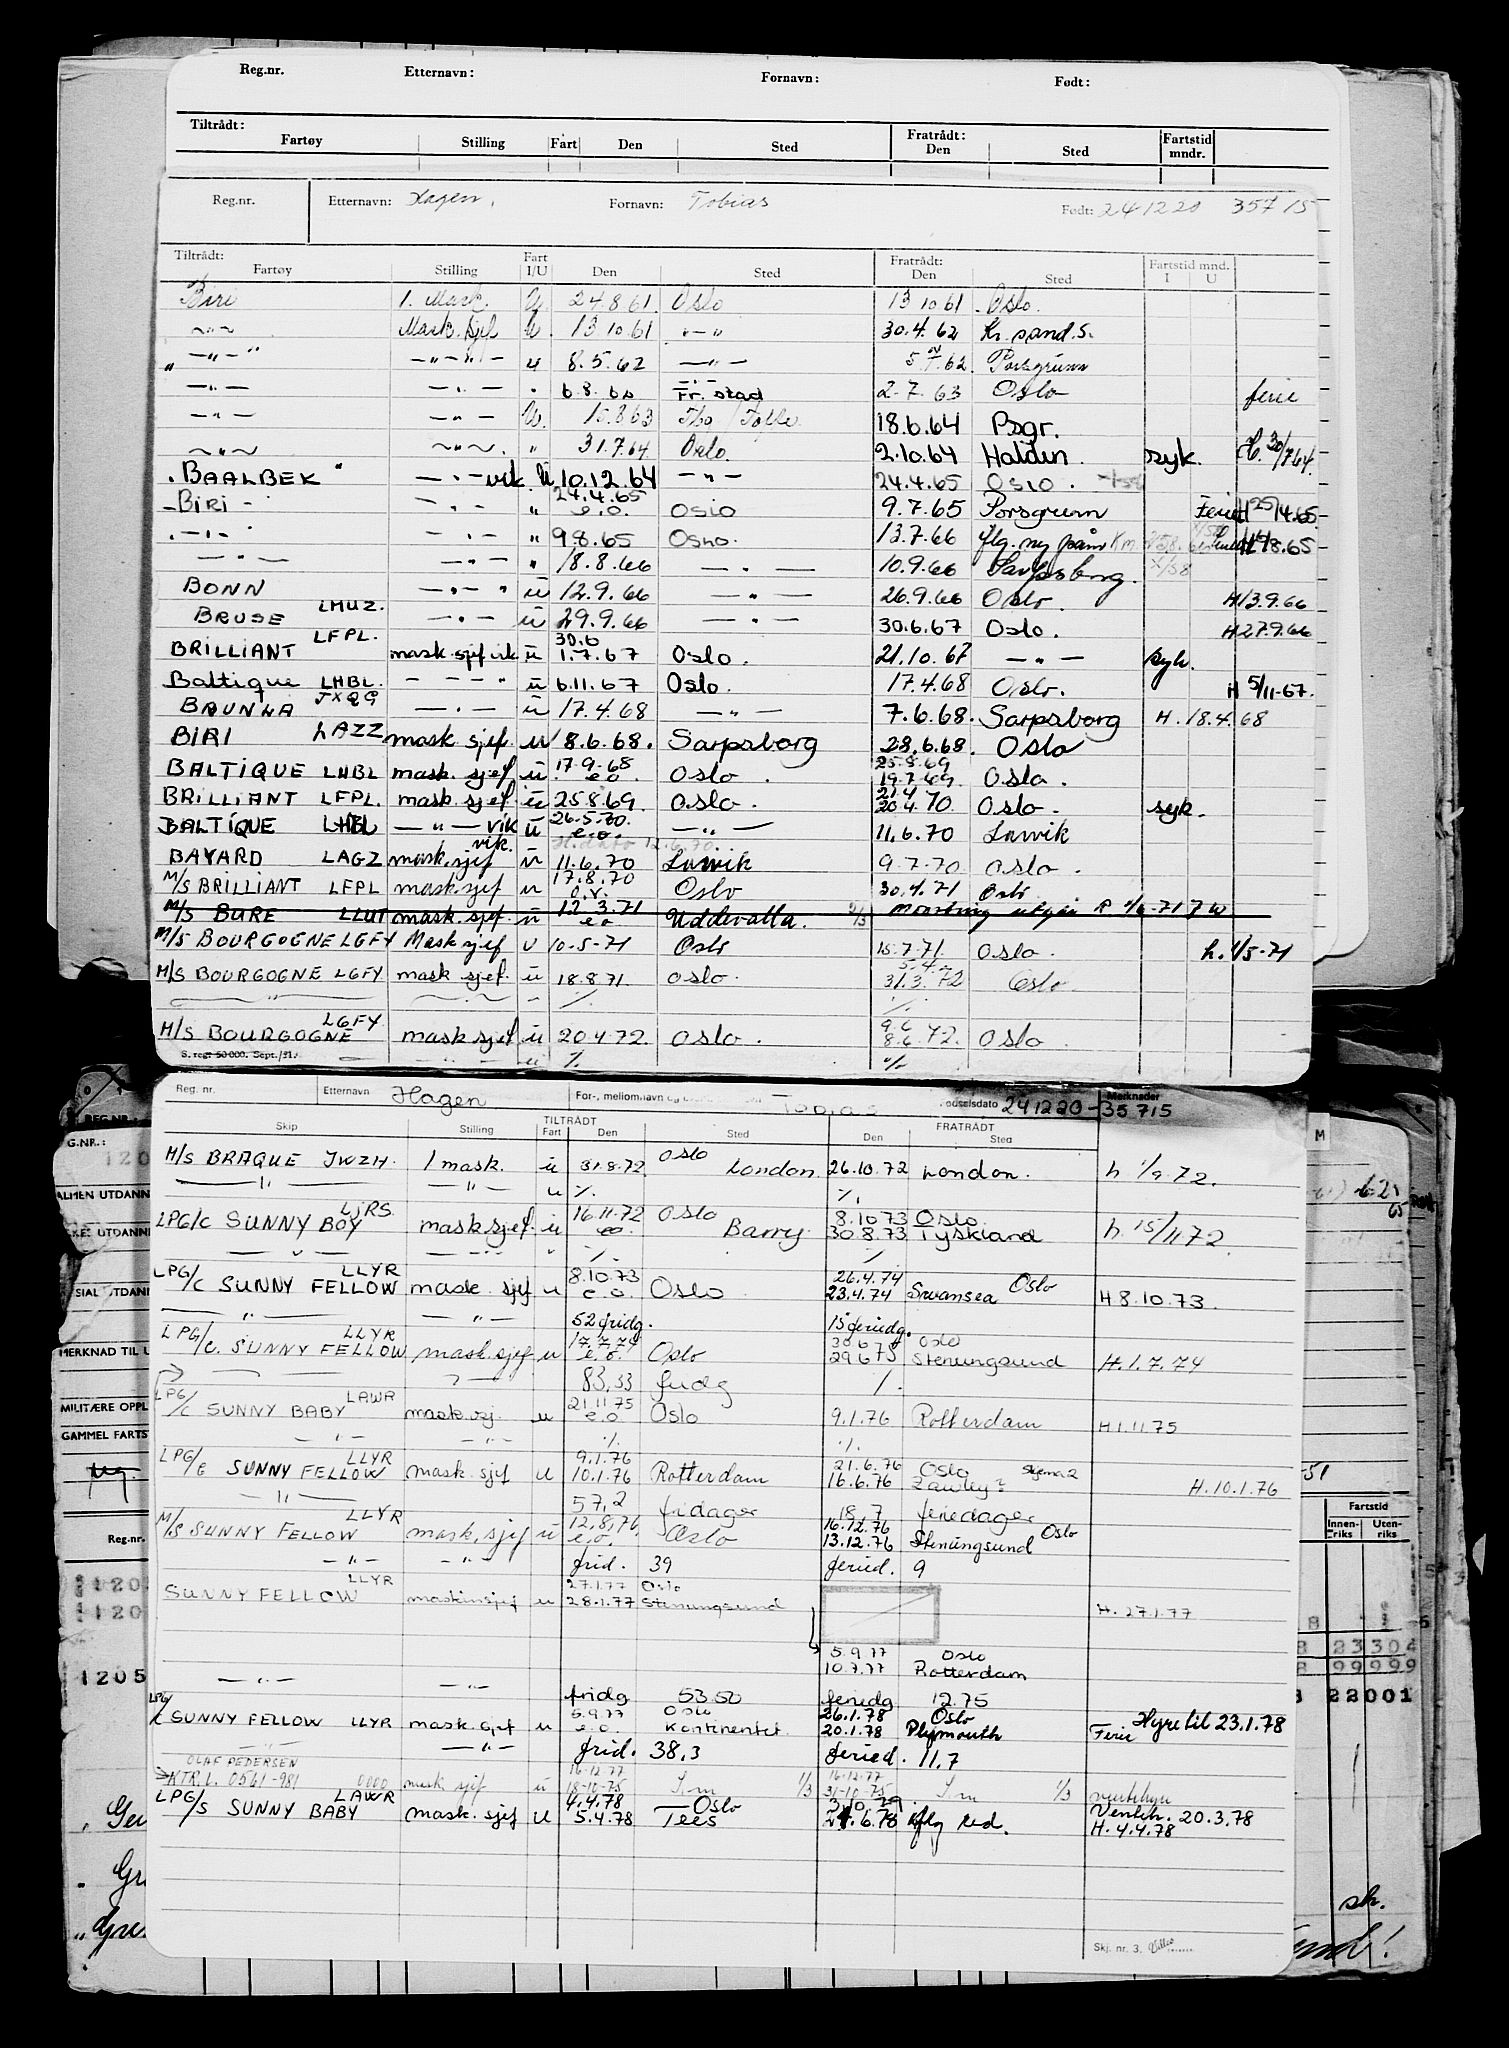 Reg.nr. Etternavn: Fornavn: Født:
Tiltrådt: Fratrådt: Fartstid
Fartøy Stilling Fart Den Sted Den Sted mndr.
Reg.nr. Etternavn: Hagen, Fornavn: Tobias Født: 241220 35715
Tiltrådt: Fart Fratrådt: Fartstid mnd.
Fartøy Stilling I/U Den Sted Den Sted I U
Biri 1. Mask. U. 24.8.61. Oslo 13 10 61 . Oslo.
—"— Mask. sjef U. 13 10.61 —"— 30.4.62 Kr.sand.S.
—"— —"— u 8.5.62 —"— 5. 62. Porsgrunn
—"— —"— Fr.stad 2.7.63 Oslo ferie
—"— —"— U. 15.863 18.6.64 Psgr.
—"— —"— " 31.7.64. Oslo. 2.10.64 Halden. syk. H. 30/7 64.
BAALBEK —"— vik. U 10.12.64 —"— 24.4.65 OSLO.
BIRI —"— " 24.4.65 e.o. OSLO 9.7.65 Porsgrunn Ferie
—"— —"— " 98.65 OSLO. 13.7.66
—"— —"— " 18.8.66 —"— 10.9.66 Sarpsborg.
BONN —"— ū 12.9.66 —"— 26.9.66 Oslo. H13.9.66
BRUSE LMUZ. —"— ū 29.9.66 —"— 30.6.67 Oslo. H27.9.66
BRILLIANT LFPL. mask.sjef vik ū 30.6 1.7.67 Oslo. 21.10.67 —"— syk.
Baltique LHBL. —"— ū 6.11.67 Oslo. 17.4.68 Oslo. H 5/11-67.
BAUNLA JXQG —"— ū 17.4.68 —"— 7.6.68. Sarpsborg H. 18.4.68
BIRI LAZZ mask.sjef. u 8.6.68. Sarpsborg 28.6.68. Oslo
BALTIQUE LHBL mask. sjef ū 17.9.68 e.o Oslo. 25.8.69 19.7.69 Oslo.
BRILLIANT LFPL. mask.sjef. ū 25.8.69. Oslo. 21.4 20.4.70. Oslo. syk.
BALTIQUE LHBL —"— vik ū 26.5.70. e.o. —"— 11.6.70 Larvik
BAYARD LAGZ mask.sjef vik. ū 11.6.70 Larvik 9.7.70 Oslo.
M/S BRILLIANT LFPL mask.sjef u 17.8.70 o.v. Oslo 30.4.71 Oslo
M/S BURE mask.sjef. ū 12.3.71 e.o Uddevalla. 2/3 utgår
M/S BOURGOGNE LGFY Mask sjef U 10-5-71 Oslo 15.7.71. Oslo. h. 1/5-71
M/S BOURGOGNE LGFY. mask sjef. ū 18.8.71. Oslo. 5.4. 31.3.72 Oslo.
—"— —"— " %. %.
M/S BOURGOGNE LGFY mask.sjef ū 20.4.72. Oslo. 9.6 8.6 72. Oslo.
S. reg: 50 000. Sept./51. —"— u %. %.
Reg. nr. Etternavn Hagen For-, mellomnavn og Tobias Fødselsdato 241220-35715 Merknader
TILTRÅDT FRATRÅDT
Skip Stilling Fart Den Sted Den Sted
M/S BRAQUE JWZH. 1 mask. ū 31.8.72. Oslo London. 26.10.72 London. h 1/9.72.
—"— —"— u %. %.
LPG/C SUNNY BOY LJRS. mask.sjef. ū 16.11.72 eo. Oslo Barry. 8.10 73 Oslo 30.8.73 Tyskland h. 15/11 72.
—"— —"— " %. %.
LPG/C SUNNY FELLOW LLYR mask. sjef u 8.10.73 e.o. Oslo 26.4.74 Oslo 23.4.74 Swansea H 8.10.73.
—"— —"— 52 fridg. 15 feriedg.
LPG/C. SUNNY FELLOW LLYR mask.sjef u 17.7.74 e.o. Oslo 30 6 75 Oslo 29 6 75 Stenungsund H.1.7.74
83,33 fridg %.
LPG/C SUNNY BABY LAWR mask.sj. u 21.11 75 e.o Oslo 9.1.76 Rotterdam H 1.11 75
—"— —"— %. %.
LPG/C SUNNY FELLOW LLYR mask. sjef u 9.1.76 10.1.76 Rotterdam 21.6.76 Oslo Skjema 2 16.6.76 H.10.1.76
—"— 57,2 fridager 18.7 feriedager
M/S SUNNY FELLOW LLYR mask. sjef ū 12.8.76 e.o. Oslo 16.12.76 Oslo 13.12.76 Stenungsund
—"— —"— frid. 39 feried. 9
SUNNY FELLOW LLYR maskinsjef u 27.1.77 Oslo 28.1.77 Stenungsund H. 27.1.77
5.9.77 Oslo
10.7.77 Rotterdam
—"— —"— fridg 53.50 feriedg 12.75
LPG/C SUNNY FELLOW LLYR mask. sjef u 5.9.77 Oslo e.o. Kontinentet. 26.1.78 Oslo 20.1.78 Plymouth Ferie Hyre til 23.1.78
—"— —"— frid. 38,3 feried. 11,7
OLAF PEDERSEN
KTR.L. 0561-981 0000 mask sjef ū 16-12-77 18-10-75 1/3 16-12-77 31-10-75 1/3 ventehyre
LPG/S SUNNY BABY LAWR mask. sjef U 4.4.78 Oslo 5.4.78 Tees 24.6.78 Venteh. 20.3.78 H. 4.4.78
Skj. nr. 3.
REG.NR.
G.NR.:
ALMEN UTDANN
MERKNAD TIL U
MILITÆRE OPPL
GAMMEL FARTS
Reg.nr.
1205
M
Fartstid
Innenriks Utenriks
23304
99999
22001
sk.